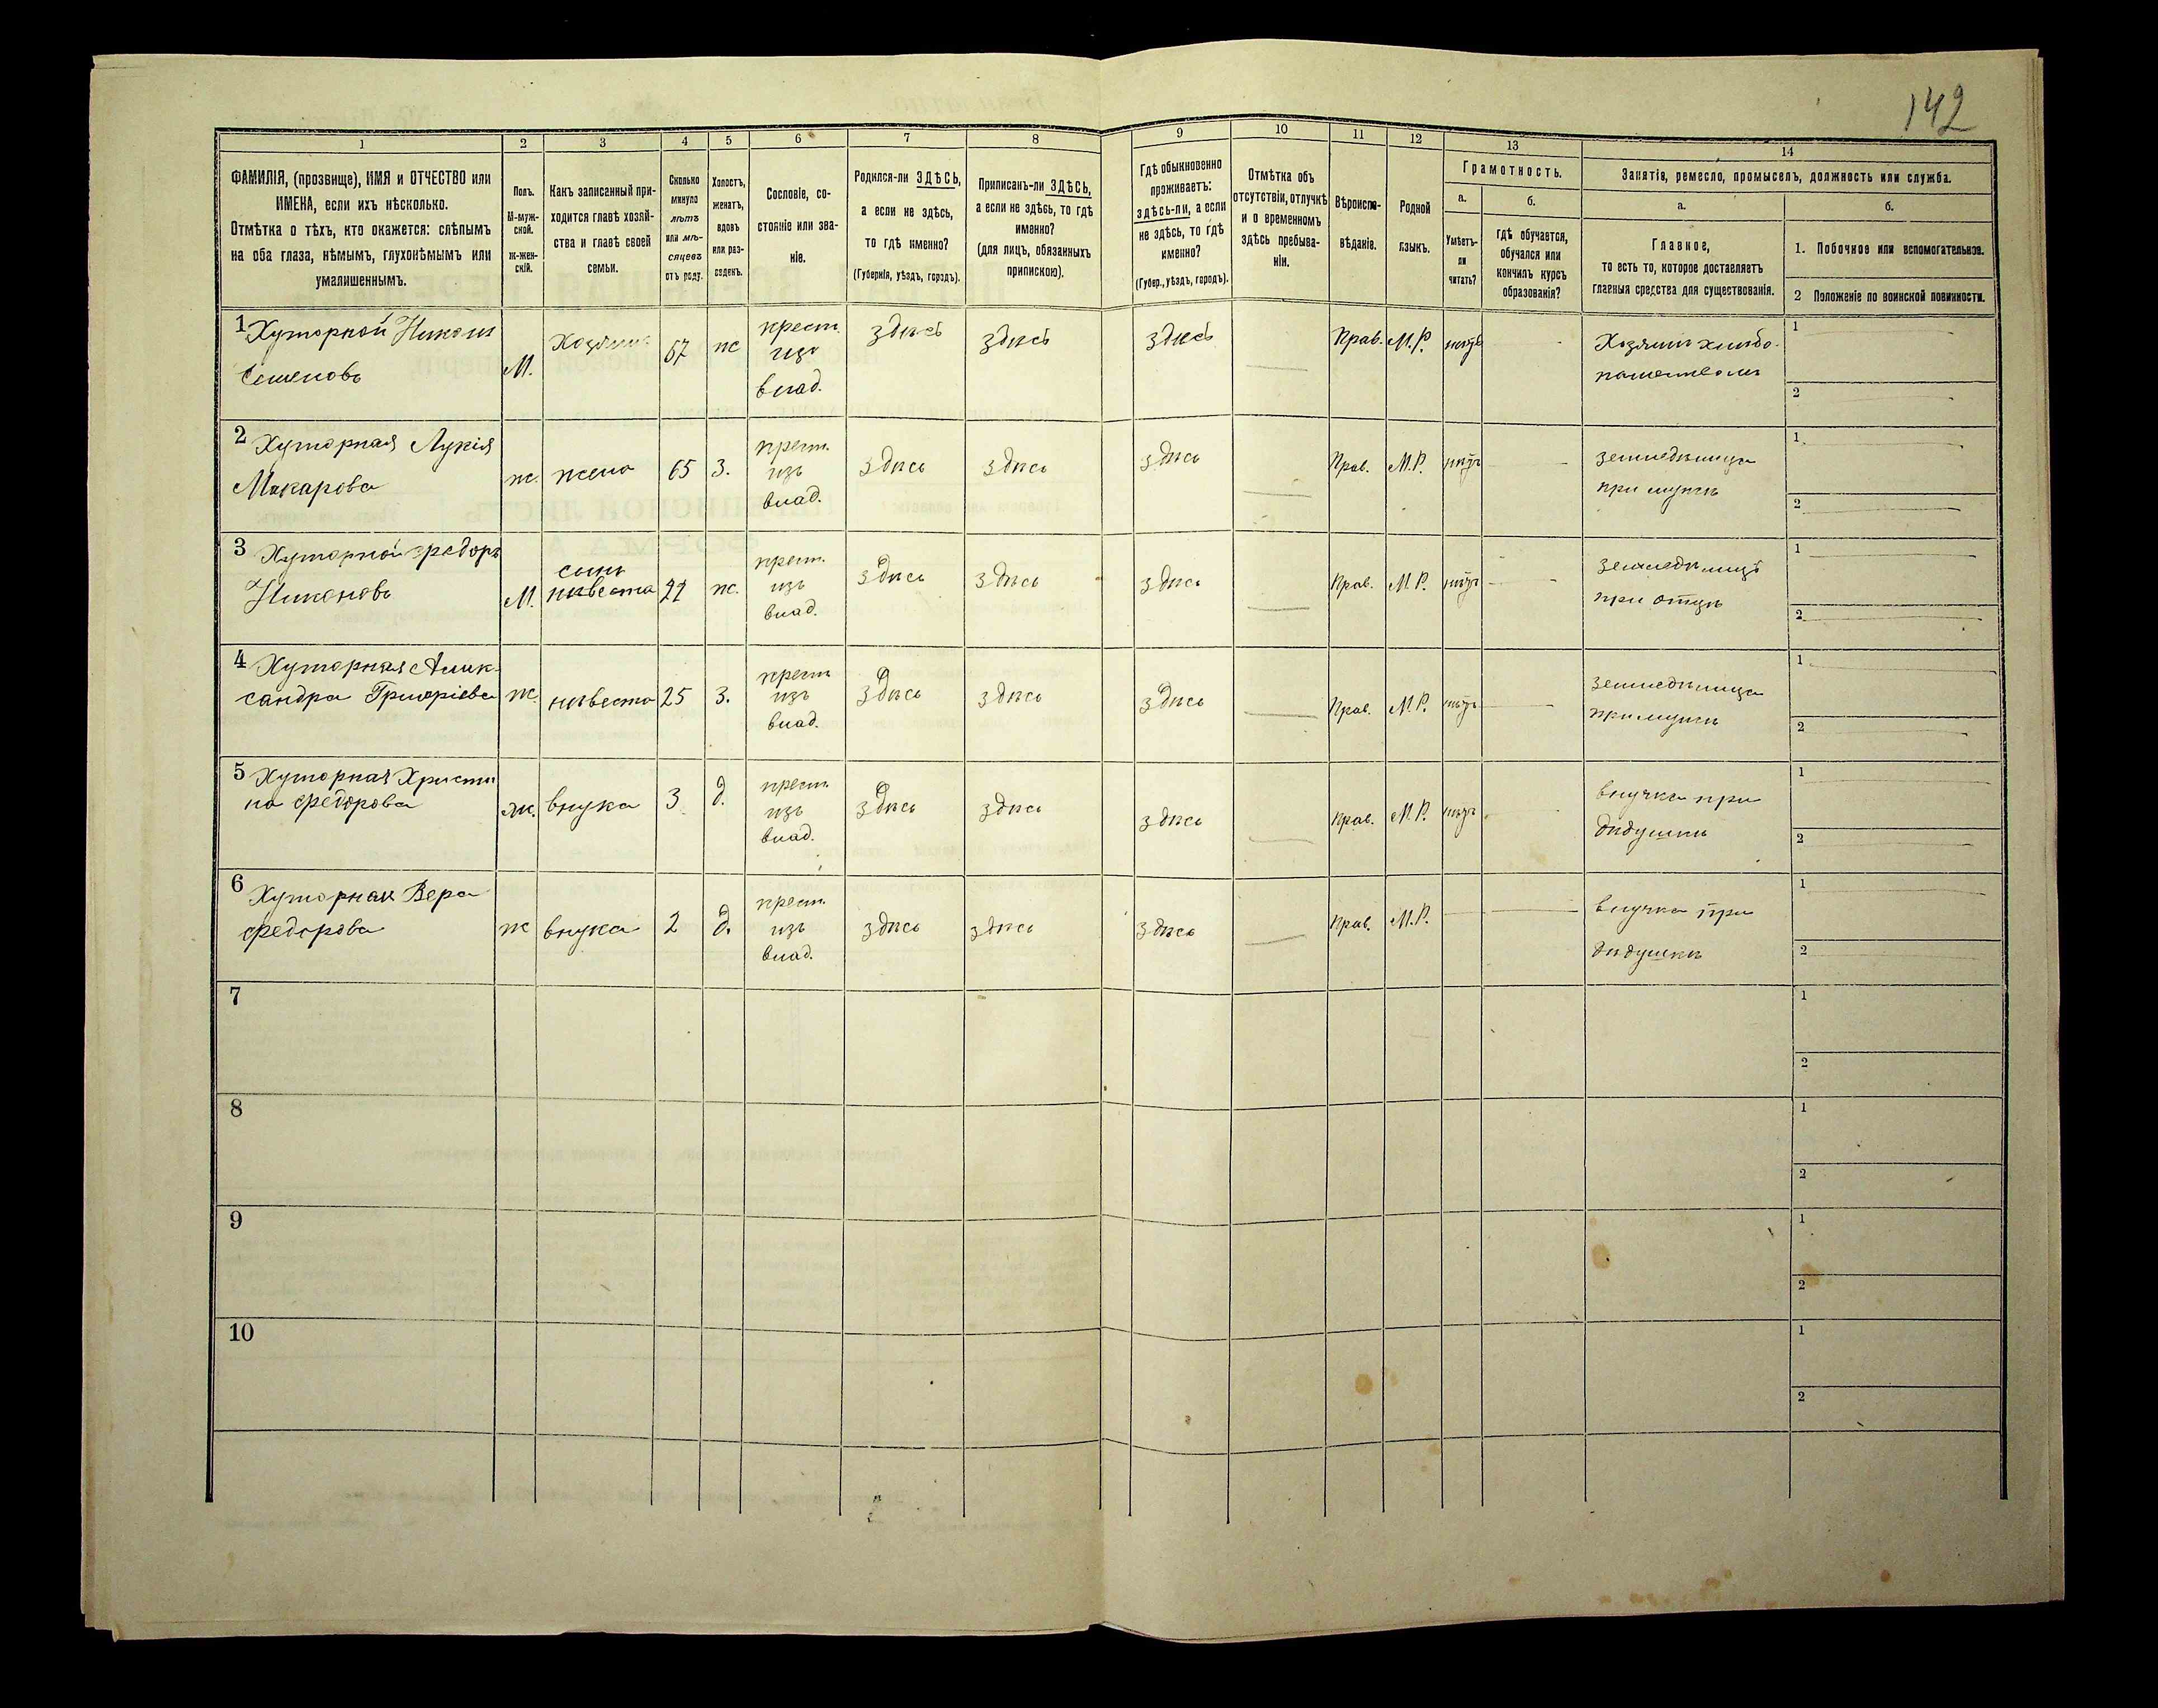 142
1 2 3 4 5 6 7 8 9 10 11 12 13 14
ФАМИЛІЯ, (прозвище), ИМЯ и ОТЧЕСТВО или
ИМЕНА, если ихъ нѣсколько.
Отмѣтка о тѣхъ, кто окажется: слѣпымъ
на оба глаза, нѣмымъ, глухонѣмымъ или
умалишеннымъ.
Полъ.
М-муж-
ской.
Ж-жен-
скій.
Какъ записанный при-
ходится главѣ хозяй-
ства и главѣ своей
семьи.
Сколько
минуло
лѣтъ
или мѣ-
сяцевъ
отъ роду.
Холостъ,
женатъ,
вдовъ
или раз-
веденъ.
Сословіе, со-
стояніе или зва-
ніе.
Родился-ли ЗДѢСЬ,
а если не здѣсь,
то гдѣ именно?
(Губернія, уѣздъ, городъ).
Приписанъ-ли ЗДѢСЬ,
а если не здѣсь, то гдѣ
именно?
(для лицъ, обязанныхъ
припискою).
Гдѣ обыкновенно
проживаетъ:
здѣсь-ли, а если
не здѣсь, то гдѣ
именно?
(Губер., уѣздъ, городъ).
Отмѣтка объ
отсутствіи, отлучкѣ
и о временномъ
здѣсь пребыва-
ніи.
Вѣроиспо-
вѣданіе.
Родной
языкъ.
Грамотность.
а.
Умѣетъ-
ли
читать?
б.
гдѣ обучается,
обучался или
кончилъ курсъ
образованія?
Занятіе, ремесло, промыселъ, должность или служба.
а.
Главное,
то есть то, которое доставляетъ
главныя средства для существованія.
б.
1. Побочное или вспомогательное.
2 Положеніе по воинской повинности.
1 Хуторной Никон
Семеновъ
М.
Хозяинъ
67
ж
крест.
изъ
влад.
здѣсь
здѣсь
здѣсь
Прав.
М.Р.
нѣтъ
Хозяинъ хлѣбо-
пашествомъ
1
2
2 Хуторная Лукія
Макарова
ж.
жена
65
З.
крест.
изъ
влад.
здѣсь
здѣсь
здѣсь
Прав.
М.Р.
нѣтъ
земледѣлица
при мужѣ
1
2
3 Хуторной Федоръ
Никоновъ
М.
сынъ
невѣста
ж.
крест.
изъ
влад.
здѣсь
здѣсь
здѣсь
Прав.
М.Р.
нѣтъ
земледѣлецъ
при отцѣ
1
2
4 Хуторная Алек-
сандра Григоріева
ж.
невѣста
25
З.
крест
изъ
влад.
здѣсь
здѣсь
здѣсь
Прав.
М.Р.
нѣтъ
земледѣлица
при мужѣ
1
2
5 Хуторная Христи
на Федорова
ж.
внука
3
д.
крест.
изъ
влад.
здѣсь
здѣсь
здѣсь
Прав.
М.Р.
нѣтъ
внучка при
дѣдушкѣ
1
2
6 Хуторная Вера
Федорова
ж
внука
2
д.
крест.
изъ
влад.
здѣсь
здѣсь
здѣсь
Прав.
М.Р.
внучка при
дѣдушкѣ
1
2
7
1
2
8
1
2
9
1
2
10
1
2